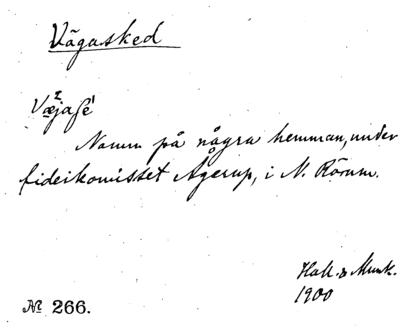 Vägasked
Væjase
Namn på några hemman, under
fideikomisset Ågerup, i N. Rörum.
Hall. & Munk.
1900
№ 266.